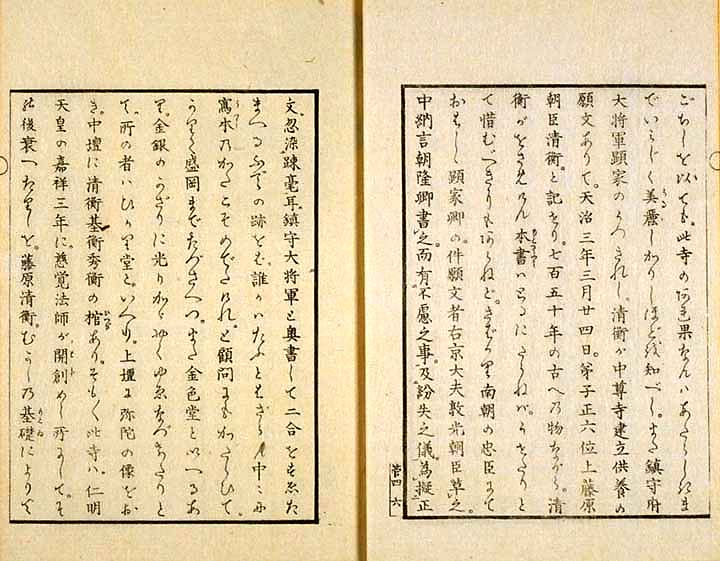 を以ても。此寺の
でいみじく美麗しかりしほどを知べし。また鎮守府
大将軍顕家のかゝれし。清衡が中尊寺建立供養の
願文ありて。天治三年三月廿四日。弟子正六位上藤原
朝臣清衡。と記せり。七百五十年の古への物ながら。清
衡がをさめけん本書ハ
て惜む。べきりもあらねど。さすがに南朝の忠臣にて
おはしゝ顕家卿の。件願文者右京大夫敦光朝臣草之。
中納言朝隆卿書之。而有不慮之事。及紛失之儀。為擬正
菅四 六
文。忍染疎毫耳。鎮守大将軍と奥書して二合をすゑた
まへるふでの跡をば。誰かハたふとまざらん。中にも
寫本のかたこそめでたけれ。と顧問にもかたらひて。
盛岡までたづさへつ。また金色堂といへるあ
り。金銀のかざりに光りかゞやくゆゑなづけたりと
て。所の者ハひかり堂と。いへり。上壇に弥陀の像をお
き。中壇に清衡基衡秀衡の棺あり。そも〳〵此寺ハ。仁明
天皇の嘉祥三年に。慈覚法師が開創めし所にして。そ
の後衰へたりしを。藤原清衡。むかしの基礎によりて